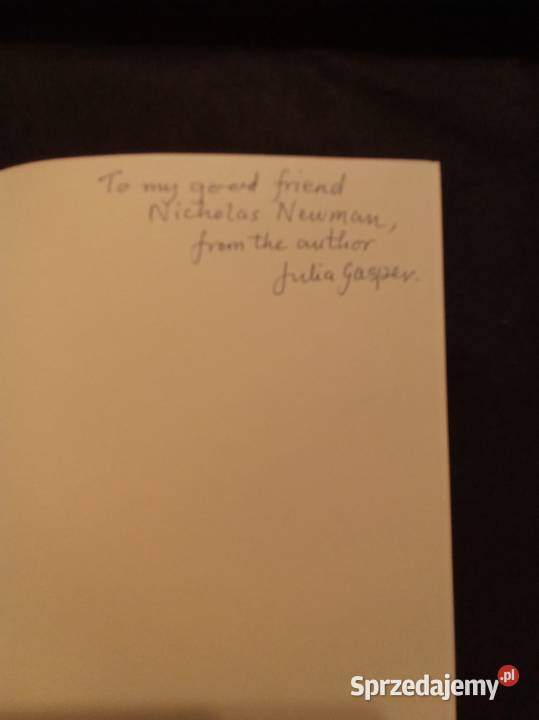 To my good friend
Nicholas Newman,
from the author
Julia Gasper.
Sprzedajemy.pl